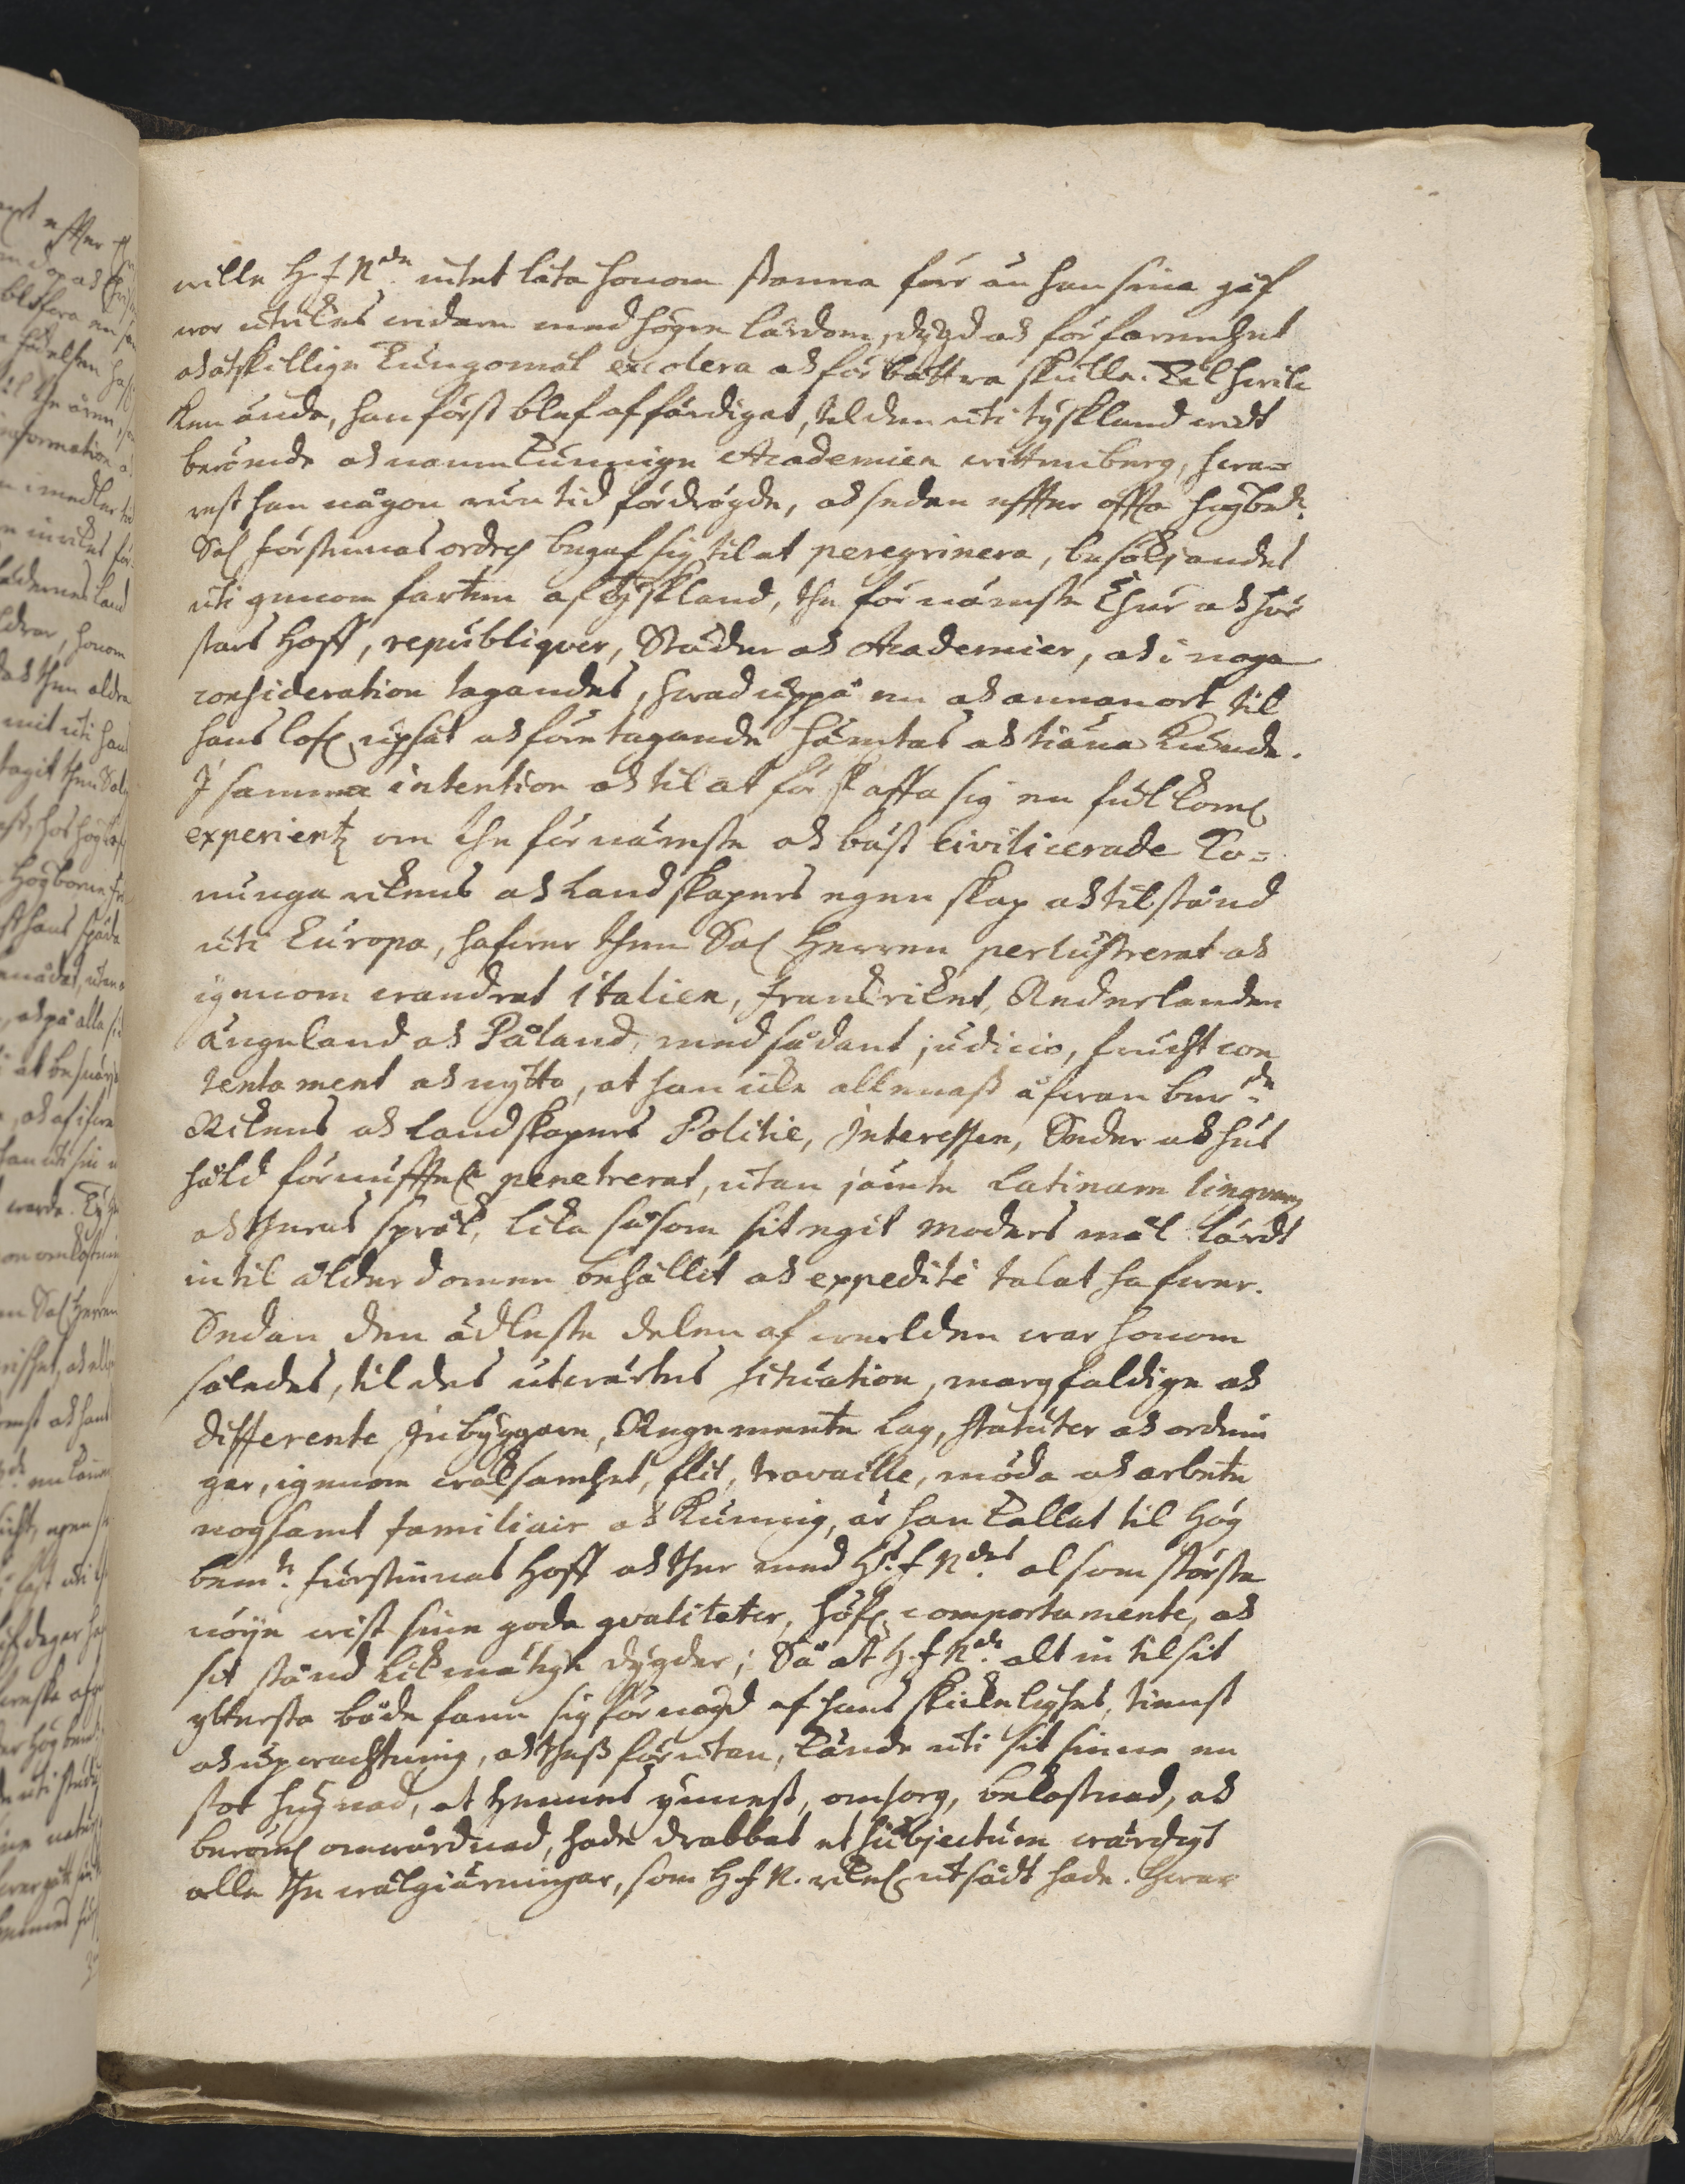 wille H. F. N:de intet låta honom stanna förr än han sina gåf
wor utrikes widare med högre lärdom, dygd och förfarenhet
och åtskillige Tungomål excolera och förbättra skulle. Til hwil
ken ände, han först blef affärdigat, til den uti tyskland widt
berömde och namnkunnige Academien wittenberg, hwa-
rest han någon rum tid fördrögde, och sedan effter offta högbe:te
Sal. förstinnas ordres begaf sig til at peregrinera, besökjandes
uti genom farten af Tyskland, the förnämste Chur och för
stars Hoff, republiqver, Städer och Academier, och i noga
consideration tagandes, hwad uppå en och annan ort til
hans lofl. upsåt och företagande hämtas och tiäna kunde.
I samma intention och til at förskaffa sig en fulkoml.
experientz om the förnämste och bäst civilicerade Ko-
nunga rikens och Landskapers egenskap och tilstånd
uti Europa, hafwer then Sal. Herren perlustrerat och
igenom wandrat Italien, Franckriket, Nederlanden
Ängeland och Påland, med sådant judicio, frucht con
tentament och nytto, at han icke allenast åfwan ber:de
Rikens och Landskapers Politie, Interessen, Seder och hus
håld förnufftel. penetrerat, utan jämte Latinam lingvam
och theras språk, lika såsom sit egit moders mål lärdt
in til ålderdomen behållit och expedite talat hafwer.
Sedan den ädleste delen af werlden war honom
således, til des utwärtes situation, mangfaldige och
differente Inbyggare, Regemente Lag, statuter och ordnin
gar, igenom waksamhet, flit, travaille, möda och arbete
nogsamt familiair och kunnig, är han kallat til Hög
bem:te fürstinnas Hoff och ther med Hs: F. N:des alsom största
nöije wist sine gode qvaliteter, höfl. comportamente, och
sit stånd likmätige dygder; Så at H. F. N:de alt in til sit
ytterste både fann sig förnögd af hans skickelighet, tienst
och upwachtning, och thess förutan, kände uti sit sinne en
stor hugnad, at Hennes ynnest, omsorg, bekostnad, och
beröml. omwårdnad, hade drabbat et subjectum wärdigt
alle the wälgiärningar, som H. F. N. rikel. utsådt hade. Hwar